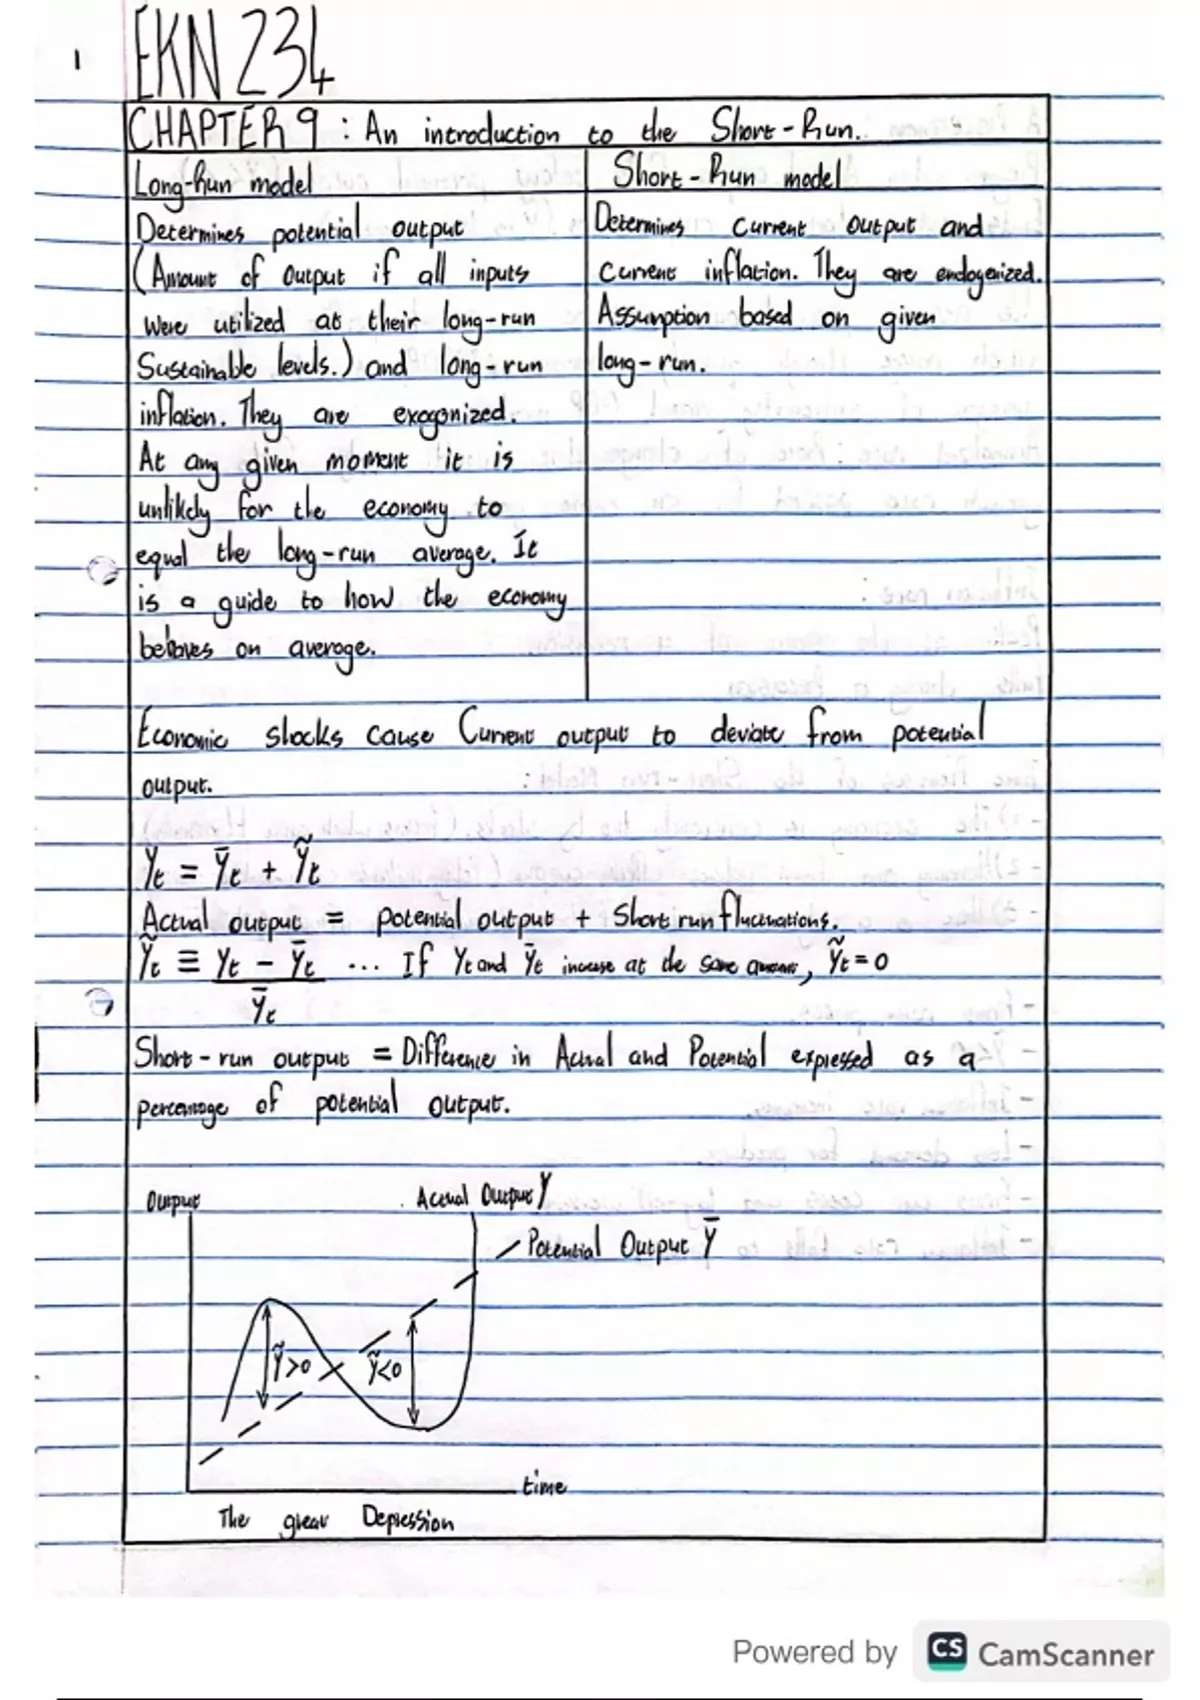 1
EKN 234
CHAPTER 9 : An introduction to the Short-Run.
Long-Run model
Determines potential output
(Amount of output if all inputs
were utilized at their long-run
Sustainable levels.) and long-run
inflation. They are exogonized.
At any given moment it is
unlikely for the economy to
equal the long-run average. It
is a guide to how the economy
behaves on average.
Short-Run model
Determines Current Output and
Current inflation. They are endogenized.
Assumption based on given
long-run.
Economic shocks cause Current output to deviate from potential
output.
Yt = Ȳt + Ỹt
Actual output = potential output + Short run fluctuations.
Ỹt ≡ Yt - Ȳt ... If Yt and Ȳt increase at the same amount, Ỹt = 0
Ȳt
Short-run output = Difference in Actual and Potential expressed as a
percentage of potential output.
Output
Actual Output Y
Potential Output Ȳ
Ỹ>0
Ỹ<0
time
The great Depression
Powered by CS CamScanner